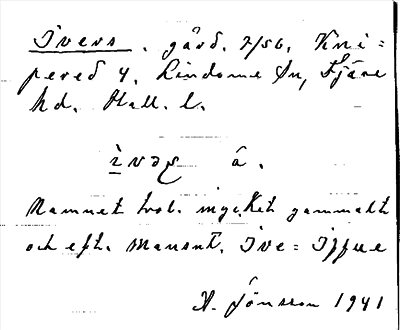 Ivers. gård. 7/56. Kni=
pered 4. Lindome sn, Fjäre
hd. Hall. l.
ìvəṣ â.
Namnet trol. mycket gammalt
och eft. mansnt. Ive = Iffue
A. Jönsson 1941